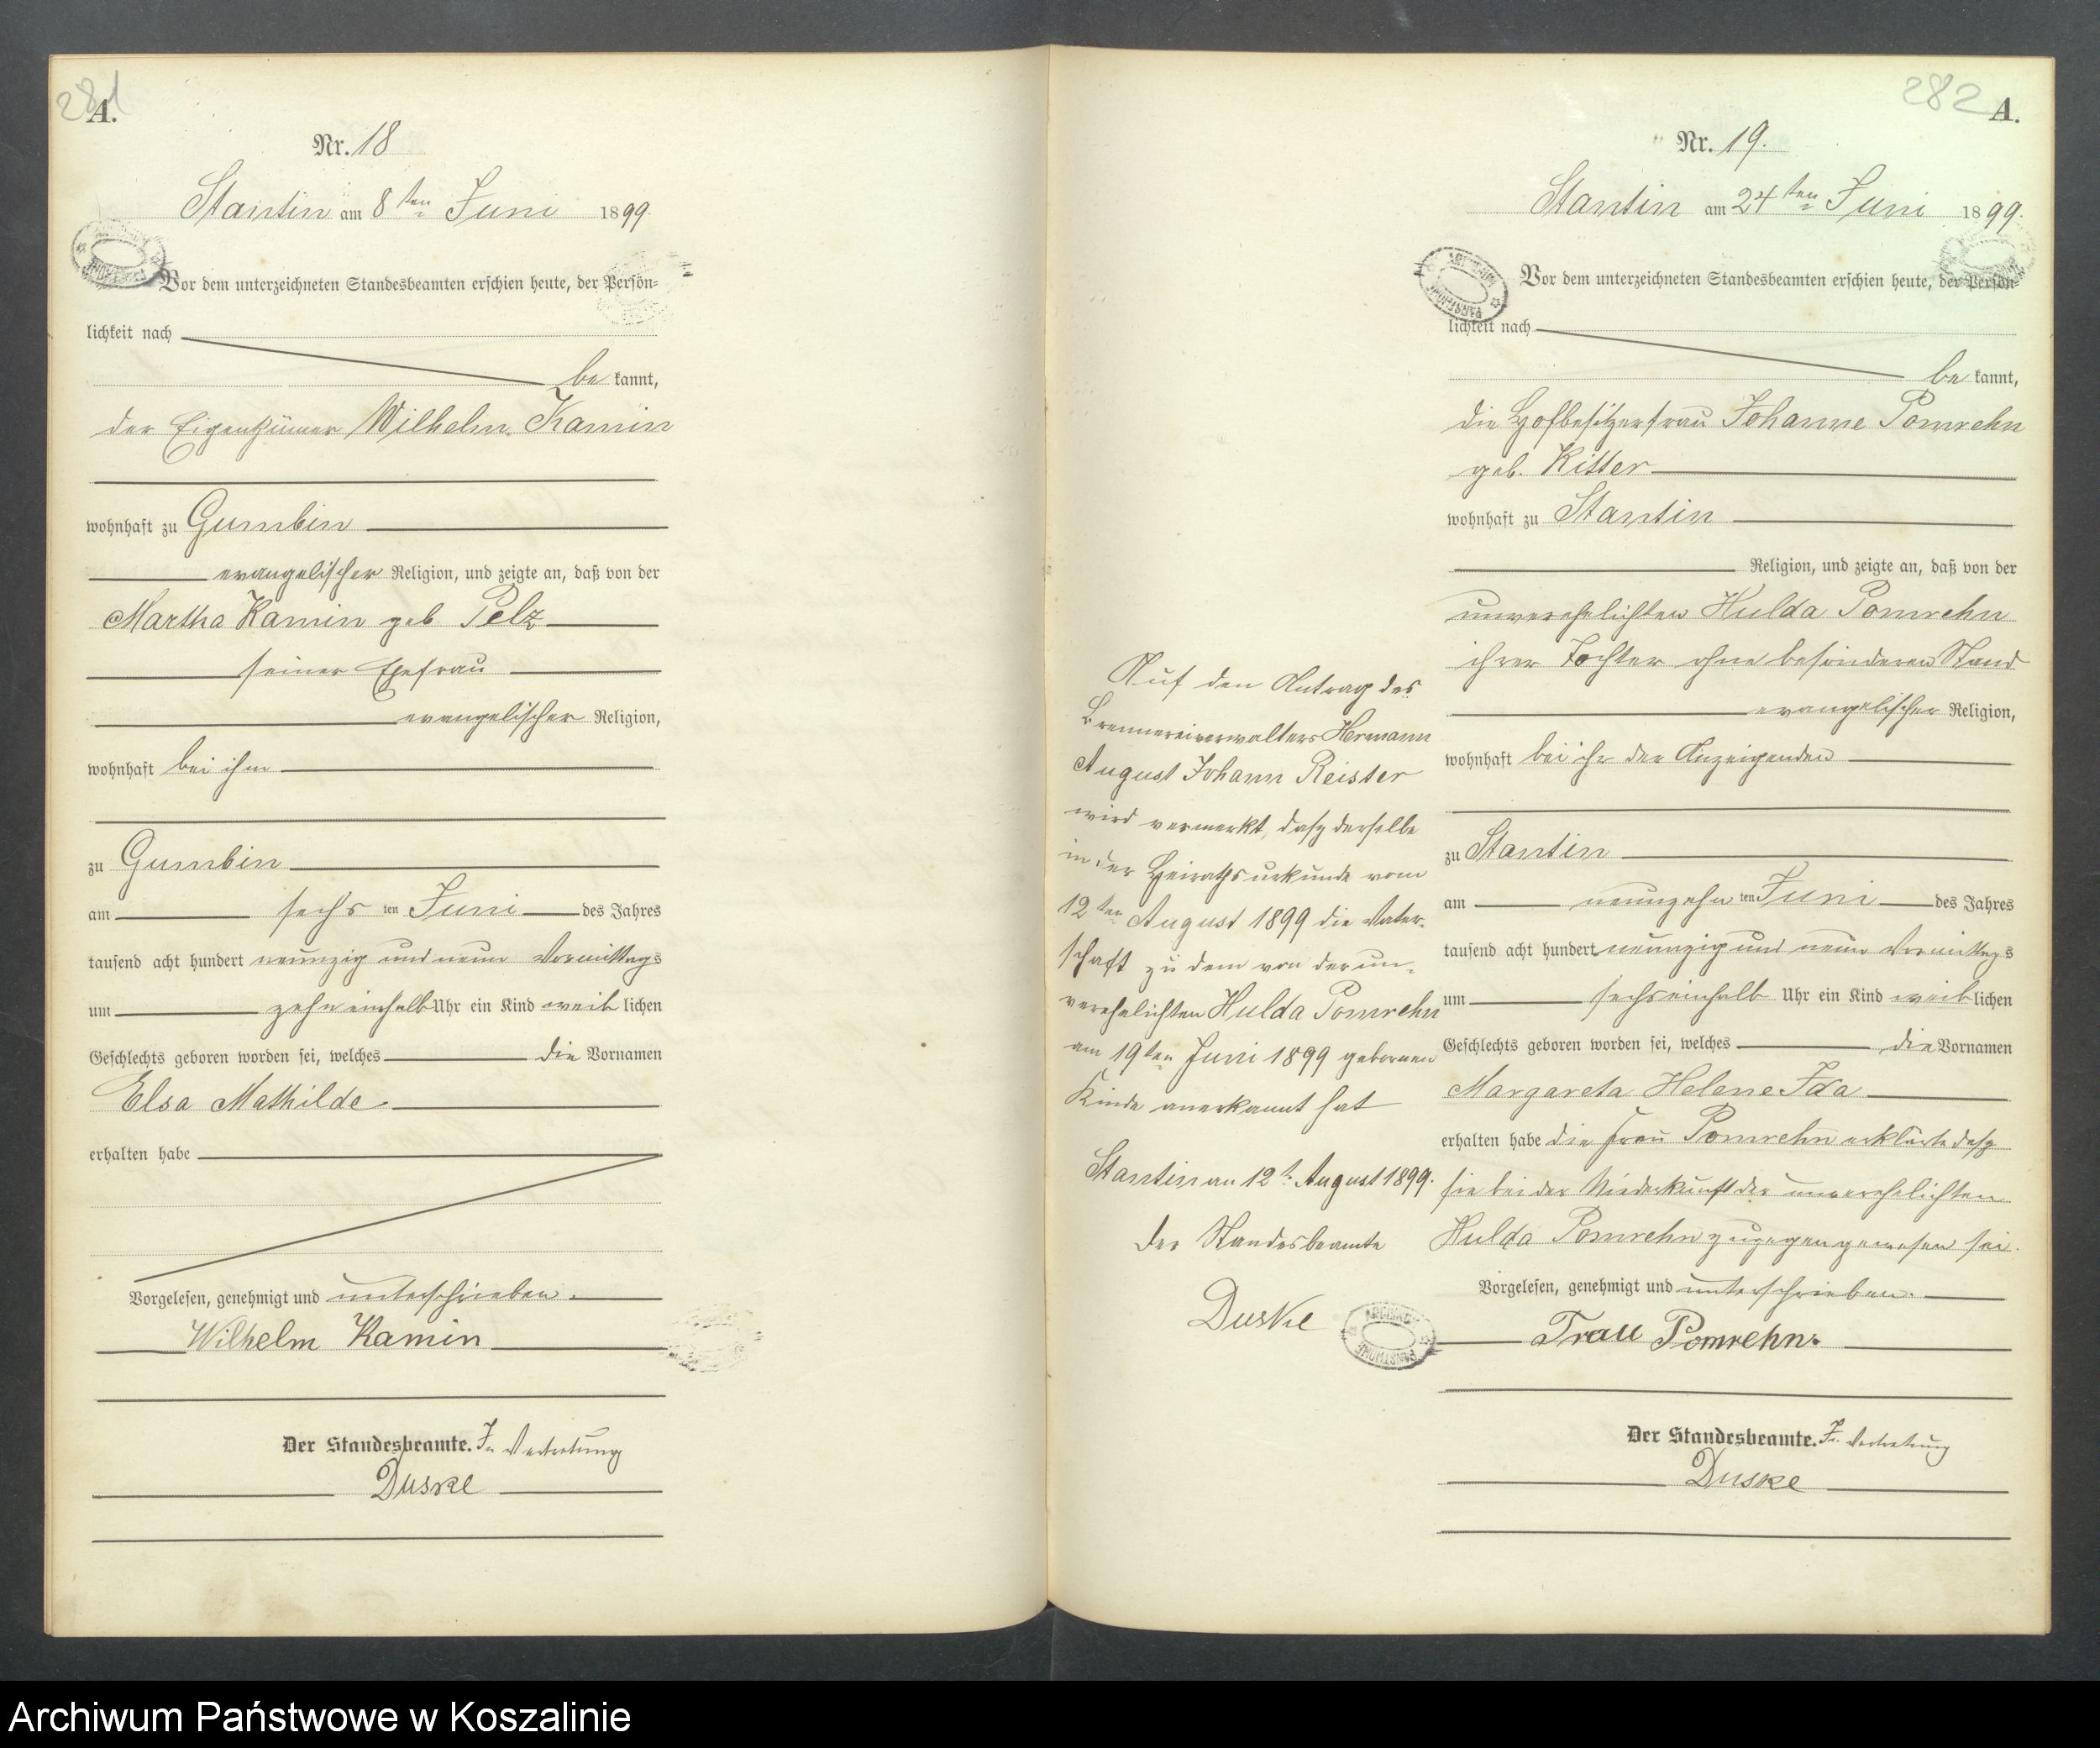 281
A.
Nr. 18
Stantin am 8ten Juni 1899.
Vor dem unterzeichneten Standesbeamten erschien heute, der Persön-
lichkeit nach
be kannt,
der Eigenthümer Wilhelm Kamin
wohnhaft zu Gumbin
evangelischer Religion, und zeigte an, daß von der
Martha Kamin geb. Pelz
seiner Ehefrau
evangelischer Religion,
wohnhaft bei ihm
zu Gumbin
am sechs ten Juni des Jahres
tausend acht hundert neunzig und neun Vormittags
um zehn einhalb Uhr ein Kind weib lichen
Geschlechts geboren worden sei, welches die Vornamen
Elsa Mathilde
erhalten habe
Vorgelesen, genehmigt und unterschrieben.
Wilhelm Kamin
Der Standesbeamte. In Vertretung
Duske
282
A.
Nr. 19.
Stantin am 24ten Juni 1899.
Vor dem unterzeichneten Standesbeamten erschien heute, der Persön-
lichkeit nach
be kannt,
die Hofbesitzerfrau Johanne Pomrehn
geb. Ritter
wohnhaft zu Stantin
Religion, und zeigte an, daß von der
unverehelichten Hulda Pomrehn
ihrer Tochter ohne besonderen Stand
evangelischer Religion,
wohnhaft bei ihr der Anzeigenden
zu Stantin
am neunzehn ten Juni des Jahres
tausend acht hundert neunzig und neun Vormittags
um sechs einhalb Uhr ein Kind weib lichen
Geschlechts geboren worden sei, welches die Vornamen
Margareta Helene Ida
erhalten habe die Frau Pomrehn erklärte daß
sie bei der Niederkunft der unverehelichten
Hulda Pomrehn zugegen gewesen sei.
Vorgelesen, genehmigt und unterschrieben.
Frau Pomrehn.
Der Standesbeamte. In Vertretung
Duske
Auf den Antrag des
Brennereiverwalters Hermann
August Johann Reister
wird vermerkt, daß derselbe
in der Heirathsurkunde vom
12ten August 1899 die Vater-
schaft zu dem von der un-
verehelichten Hulda Pomrehn
am 19ten Juni 1899 gebornen
Kinde anerkannt hat
Stantin am 12t August 1899.
Der Standesbeamte
Duske
Archiwum Państwowe w Koszalinie